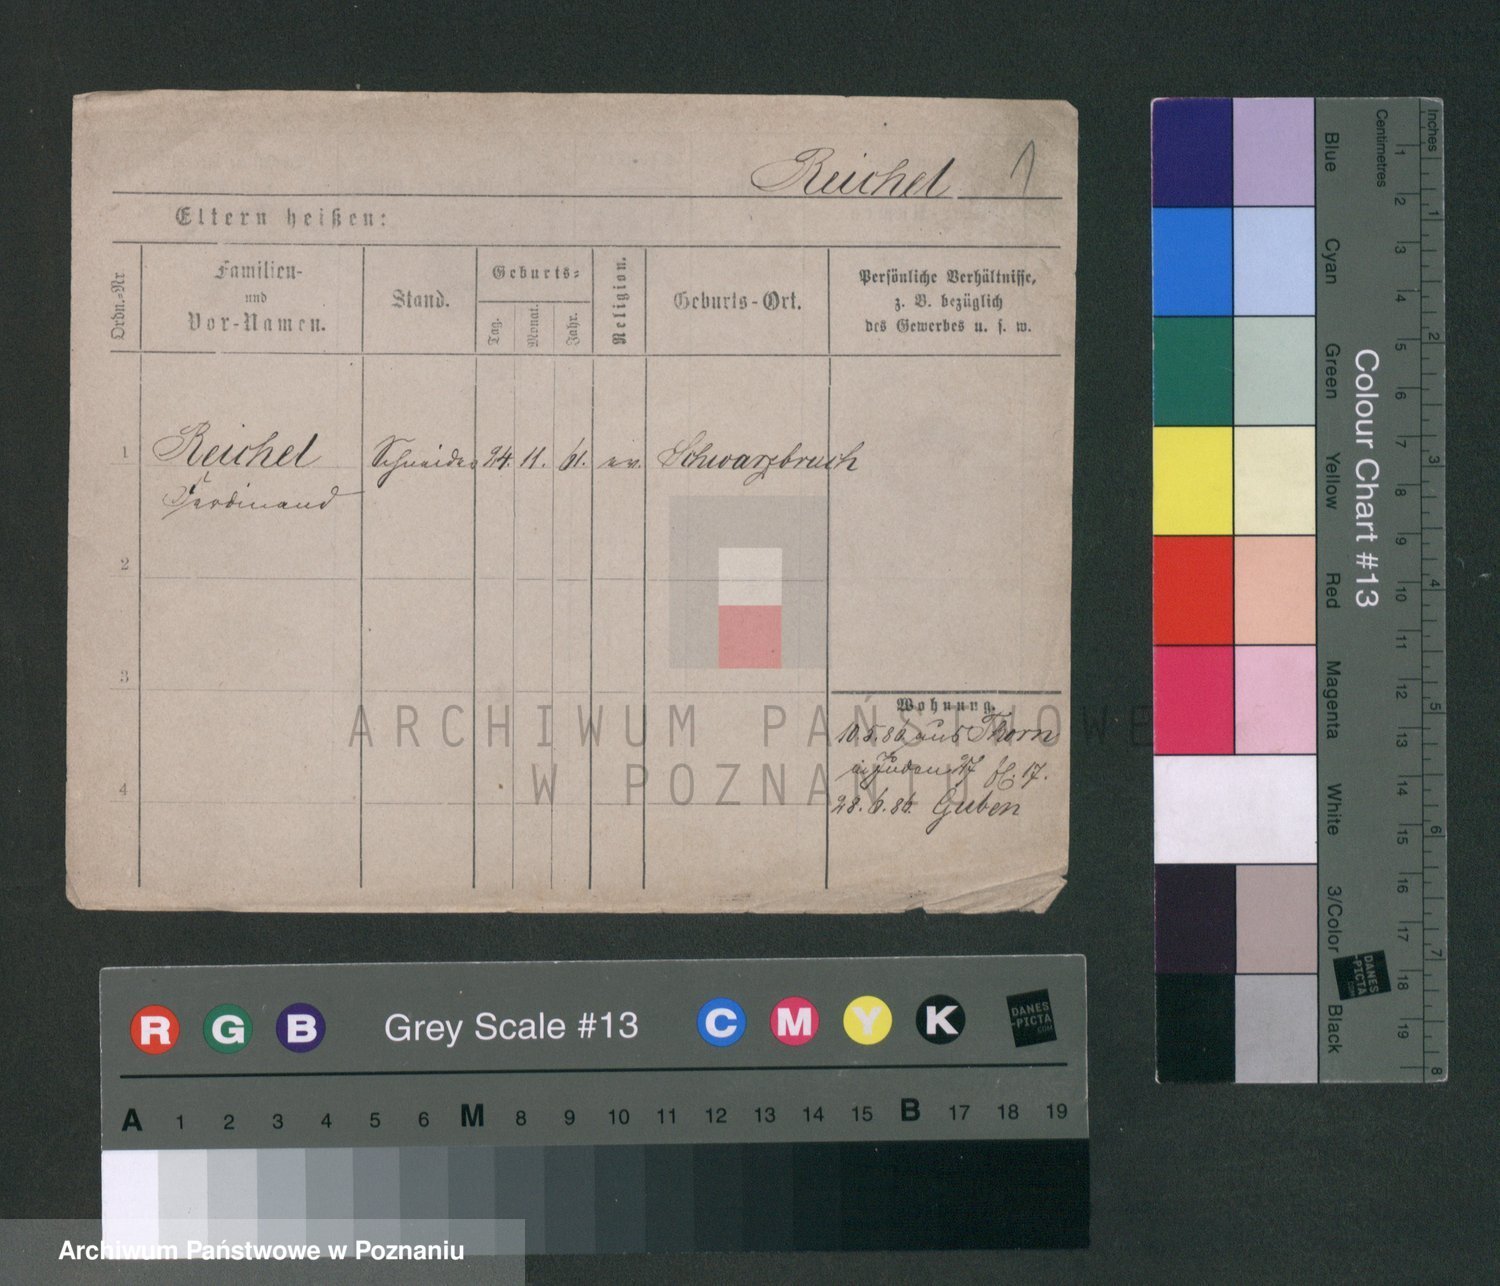 Reichel 1
Eltern heißen:
Ordn.=Nr
Familien-
und
Vor-Namen.
Stand.
Geburts=
Tag.
Monat.
Jahr.
Religion.
Geburts-Ort.
Persönliche Verhältnisse,
z. B. bezüglich
des Gewerbes u. s. w.
1 Reichel Schneider 24. 11. 61. ev. Schwarzbruch
Ferdinand
2
3
4
Wohnung.
10.5.86 aus Thorn
Juden 17.
28.6.86 Guben
ARCHIWUM PAŃSTWOWE
W POZNANIU
Inches
Centimetres
1 2 3 4 5 6 7 8 9 10 11 12 13 14 15 16 17 18 19
1 2 3 4 5 6 7 8
Colour Chart #13
Blue
Cyan
Green
Yellow
Red
Magenta
White
3/Color
Black
DANES
-PICTA
.COM
R G B Grey Scale #13 C M Y K
DANES
-PICTA
.COM
A 1 2 3 4 5 6 M 8 9 10 11 12 13 14 15 B 17 18 19
Archiwum Państwowe w Poznaniu